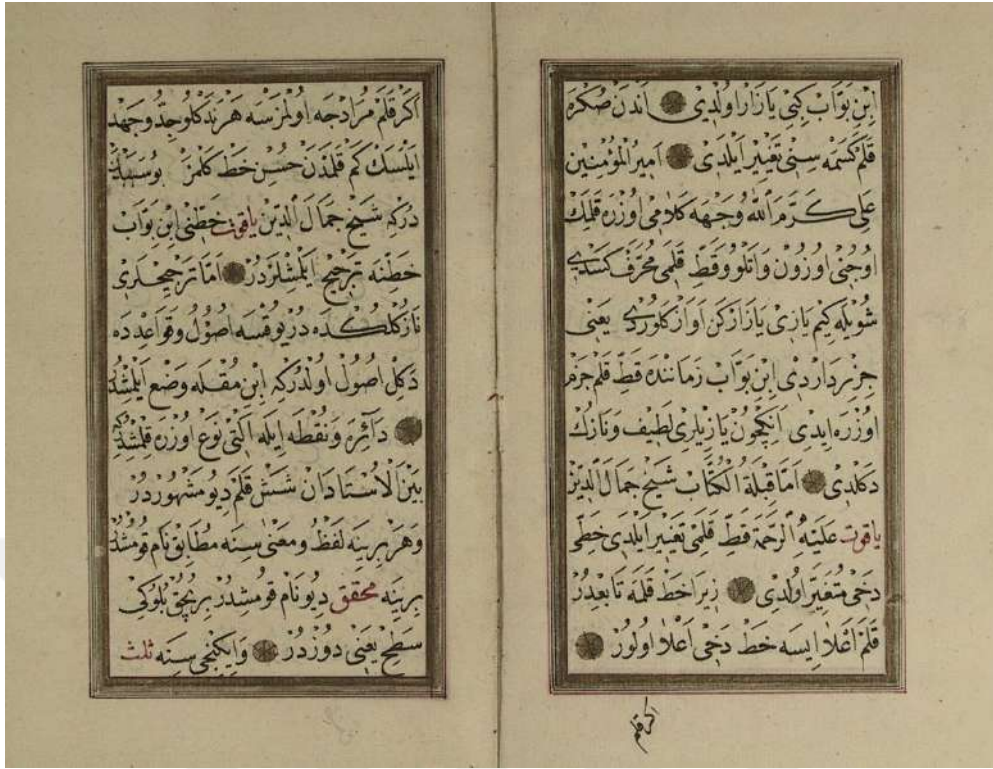 ابن بواب كبي يازار اولدي اندن صكره
قلم كسمه سني تغيير ايلدي امير المؤمنين
علي كرم الله وجهه كلامي اوزره قلمك
اوجني اوزون و اتلو و قط قلمي محرف كسدي
شويله كيم يازي يازاركن اواز كلوردي يعني
جزير داردي ابن بواب زماننده قط قلم جزم
اوزره ايدي انكچون يازيلري لطيف و نازك
دكلدي اما قبلة الكتاب شيخ جمال الدين
ياقوت عليه الرحمة قط قلمي تغيير ايلدي خطي
دخي متغير اولدي زيرا خط قلمه تابعدر
قلم اعلا ايسه خط دخي اعلا اولور
اكر قلم
اكر قلم مرادجه اولمزسه هر ندكلو جد و جهد
ايلسك كم قلمدن حسن خط كلمز بو سببدن
دركه شيخ جمال الدين ياقوت خطني ابن بواب
خطنه ترجيح ايلمشلردر اما ترجيحلري
نازكلكده در يوقسه اصول و قواعدده
دكل اصول اولدركه ابن مقله وضع ايلمشدر
دائره و نقطه ايله التي نوع اوزره قلمشدركه
بين الاستادان شش قلم ديو مشهوردر
و هر برينه لفظ و معني سنه مطابق نام قومشدر
برينه محقق ديو نام قومشدر بر بچق بلوكي
سطح يعني دوزدر و ايكنجي سنه ثلث